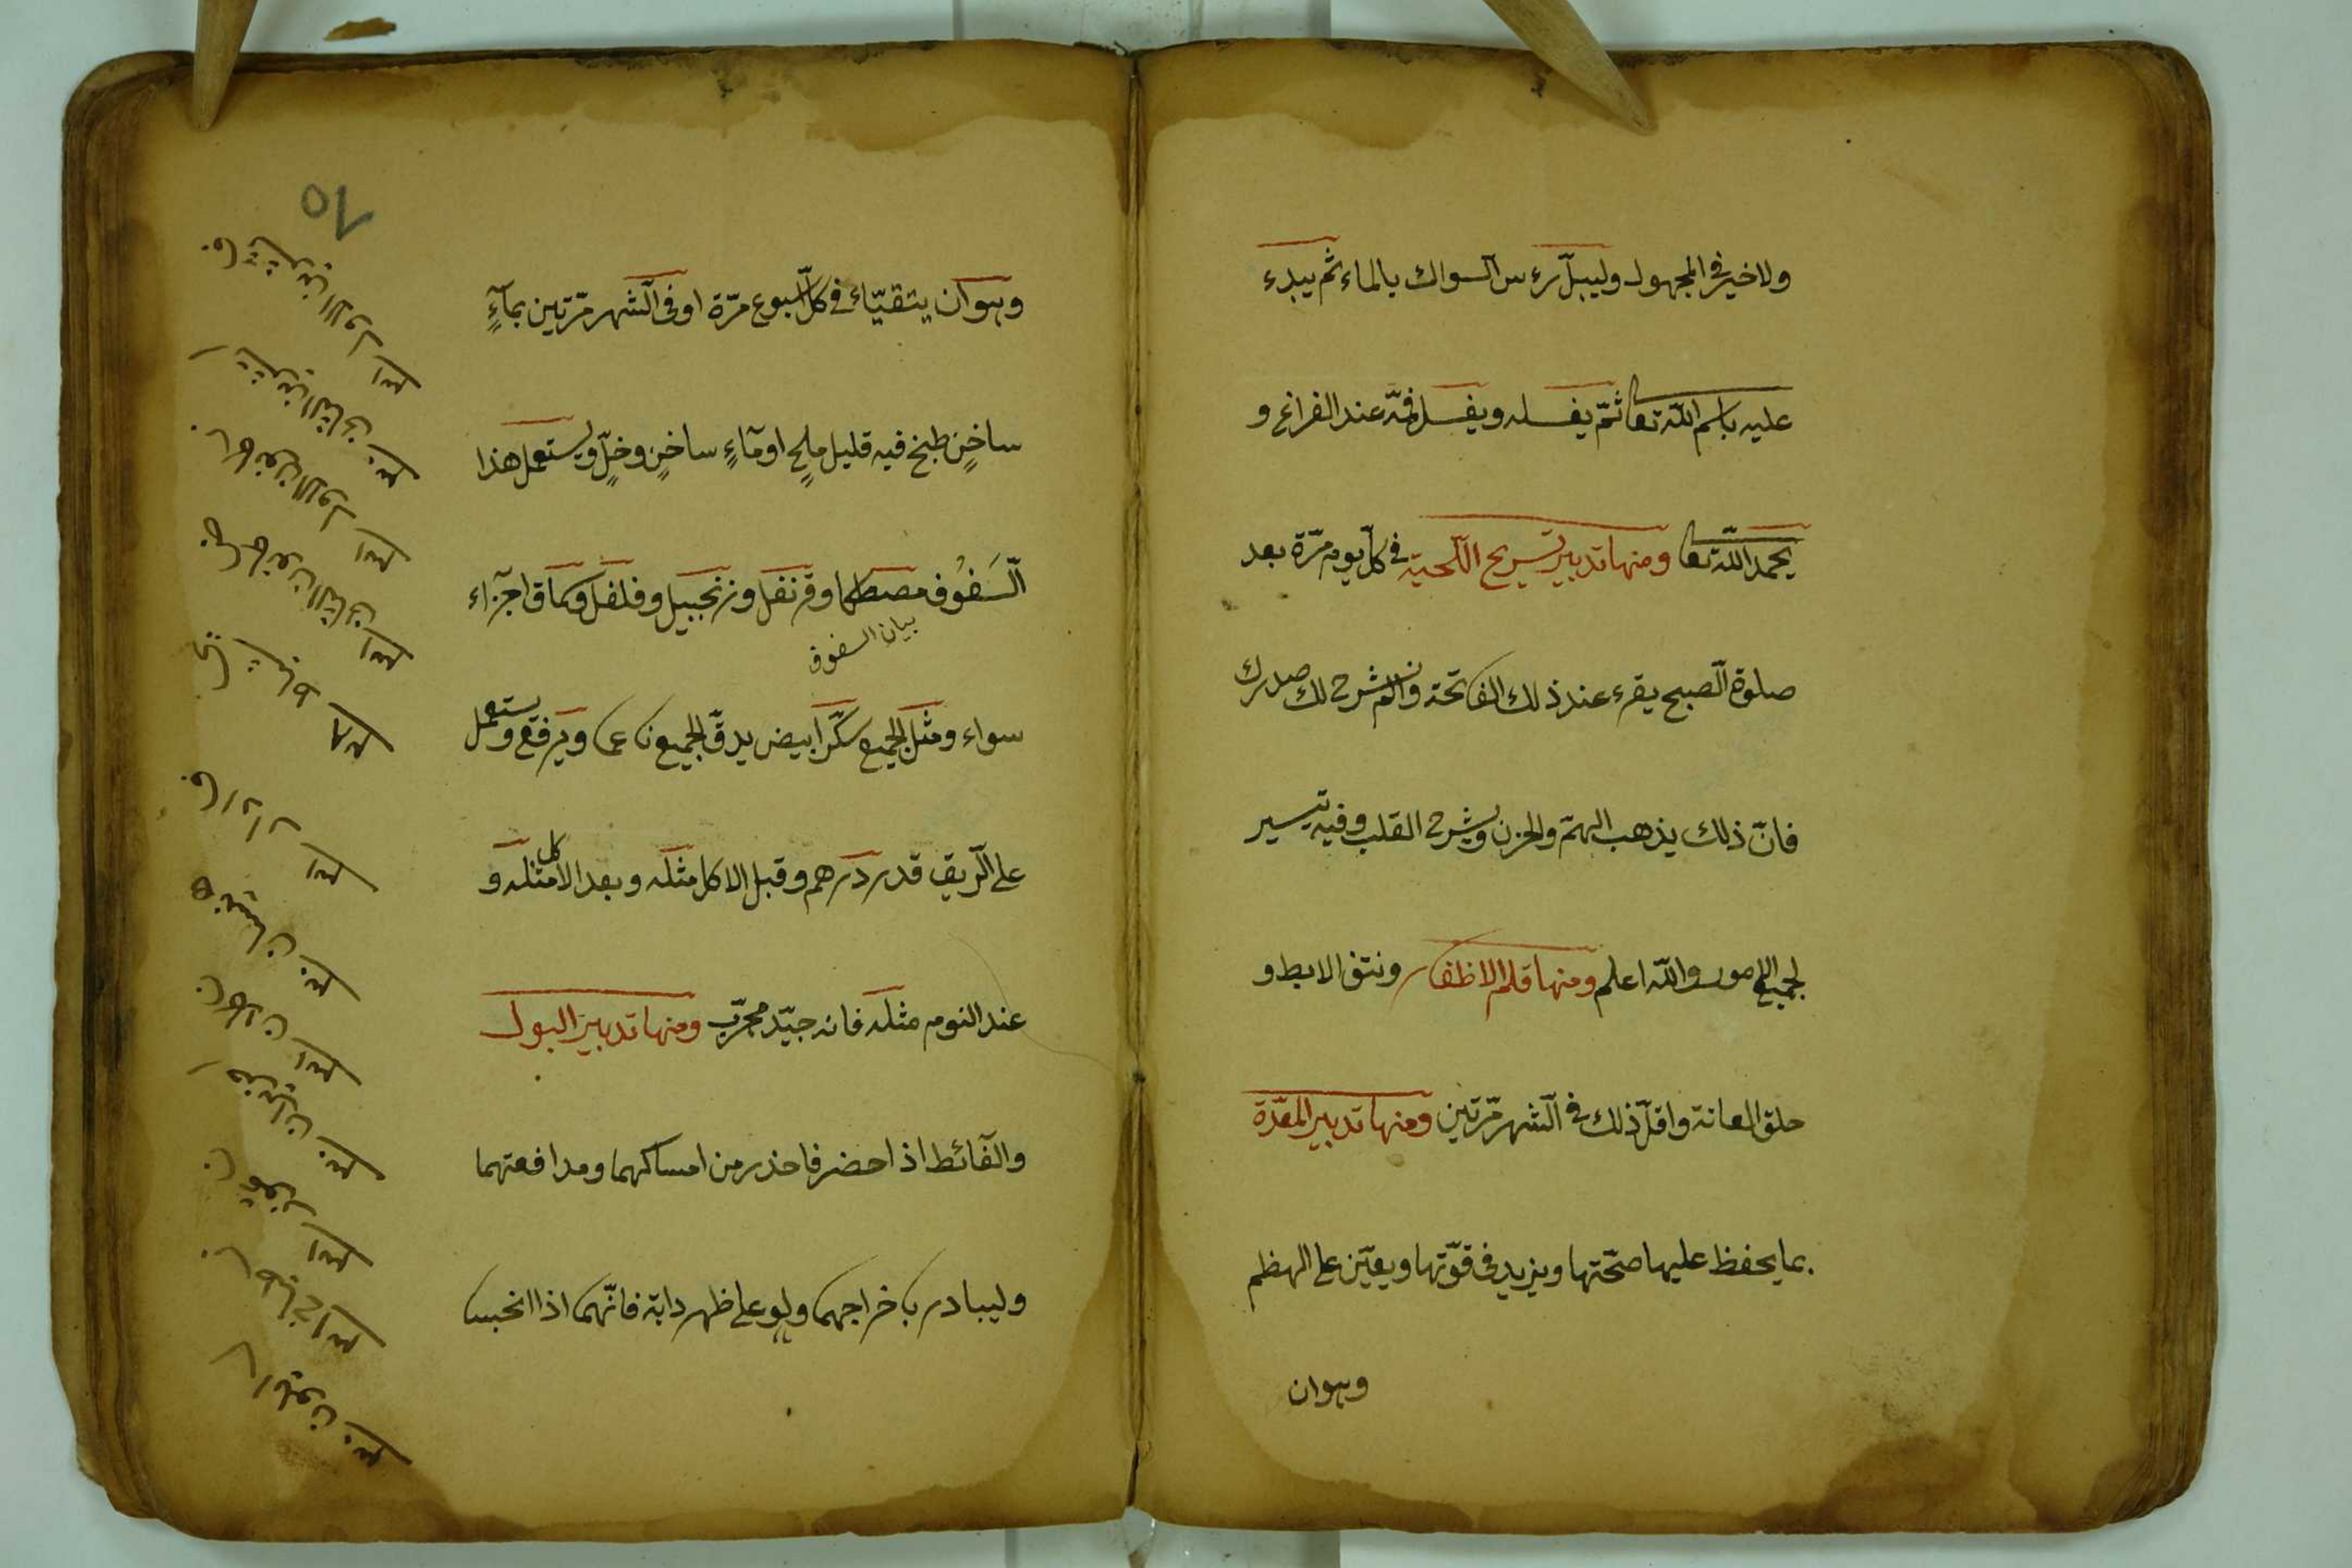 ولا خير في المجهول وليبلّ رءس السواك بالماء ثم يبدء
عليه باسم الله تعا ثمّ يغسله ويغسل فمّه عند الفراغ و
يحمد الله تعا ومنها تدبير تسريح اللّحية في كلّ يوم مرّة بعد
صلوة الصّبح يقرء عند ذلك الفاتحة والم نشرح لك صدرك
فانّ ذلك يذهب الهمّ والحزن ويشرح القلب وفيه تيسير
لجميع الامور والله اعلم ومنها قلم الاظفار ونتف الابط و
حلق العانة واقلّ ذلك في الشّهر مرّتين ومنها تدبير المعدة
بما يحفظ عليها صحّتها ويزيد في قوّتها ويعيّن على الهظم
وهوان
١٥
وهوان يتقيّاء في كلّ اسبوع مرّة او في الشّهر مرّتين بمآءٍ
ساخنٍ طبخ فيه قليل ملحٍ او مآءٍ ساخنٍ وخلٍّ ويستعمل هذا
السَّفُوف مصطكا وقرنفل وزنجبيل وفلفل وسماق اجزاء
بيان السفوف
سواء ومثل الجميع سكّرا ابيض يدقّ الجميع ناعما ويرفع ويستعمل
على الرّيق قدر درهم وقبل الاكل مثله وبعد الاكل مثله و
عند النوم مثله فانه جيّد مجرّب ومنها تدبير البول
والغآئط اذا حضر فاحذر من امساكهما ومدافعتهما
وليبادر باخراجهما ولو على ظهر دابة فانّهما اذا انحبسا
تشرين الاول
تشرين الثاني
كانون الاول
كانون الثاني
شباط
اذار
نيسان
حزيران
تموز
ايلول